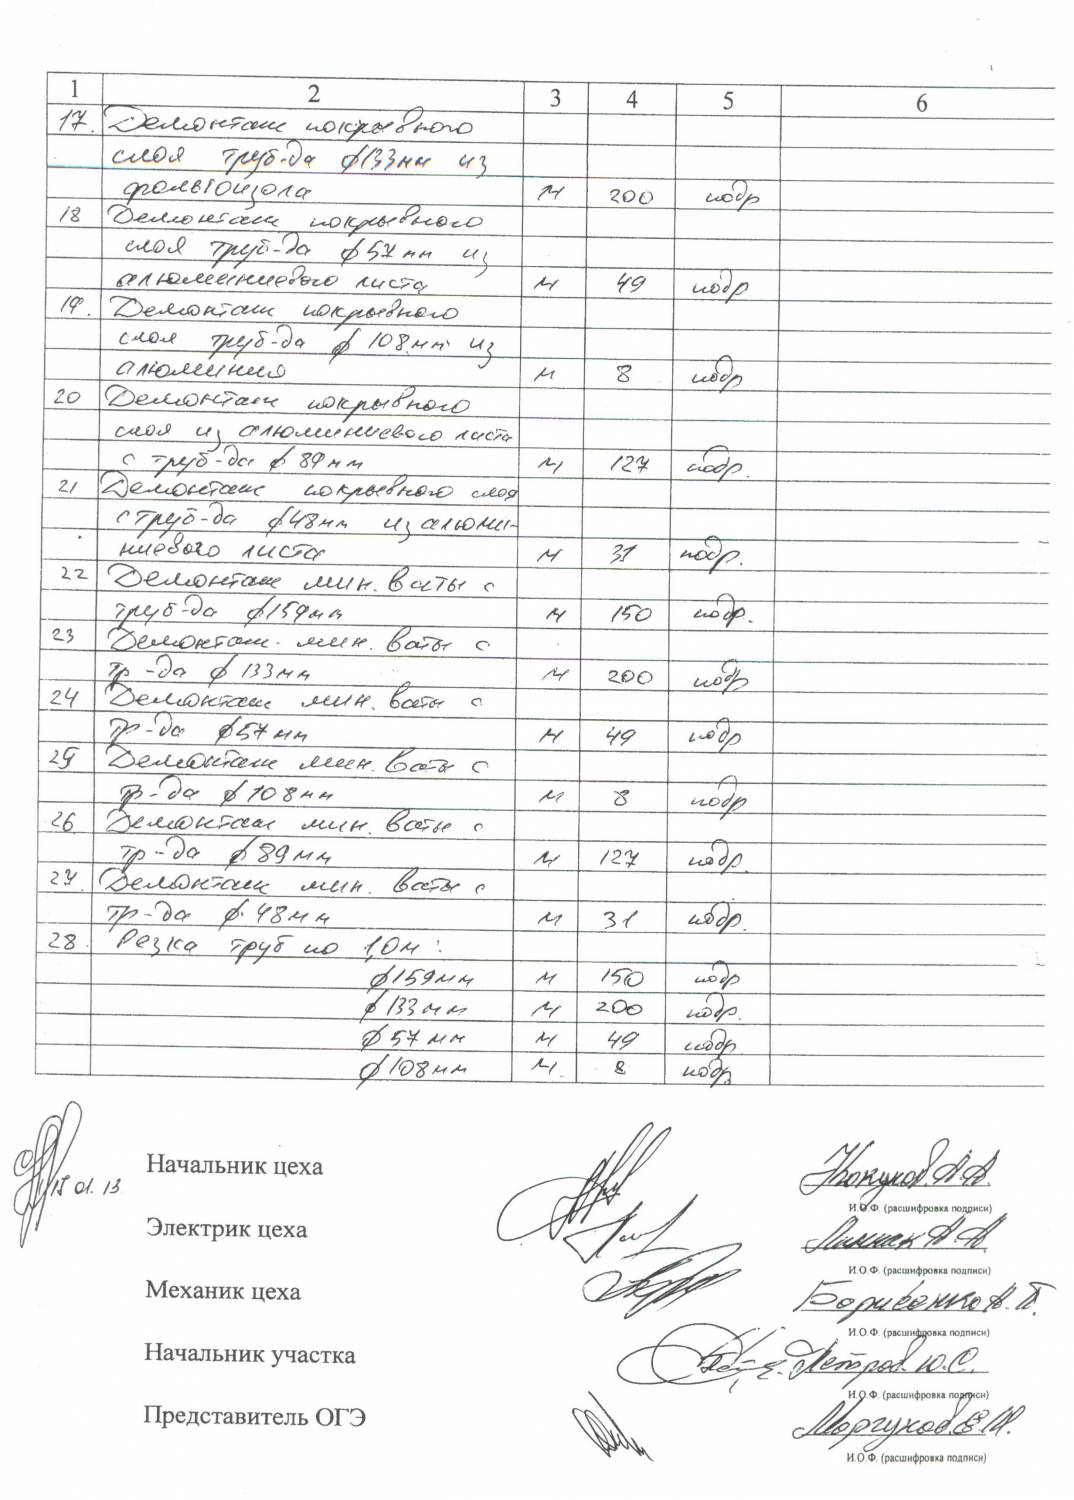 1 2 3 4 5 6
17. Демонтаж покрывного
слоя труб-да ф133мм из
фольгоизола м 200 подр
18 Демонтаж покрывного
слоя труб-да ф57мм из
алюминиевого листа м 49 подр
19. Демонтаж покрывного
слоя труб-да ф 108мм из
алюминия м 8 подр
20 Демонтаж покрывного
слоя из алюминиевого листа
с труб-да ф 89мм м 127 подр.
21 Демонтаж покрывного слоя
с труб-да ф48мм из алюми-
ниевого листа м 31 подр.
22 Демонтаж мин. ваты с
труб-да ф159мм м 150 подр.
23 Демонтаж мин. ваты с
тр-да ф 133мм м 200 подр
24 Демонтаж мин. ваты с
тр-да ф57мм м 49 подр
25 Демонтаж мин. ваты с
тр-да ф108мм м 8 подр
26 Демонтаж мин. ваты с
тр-да ф89мм м 127 подр.
27. Демонтаж мин. ваты с
тр-да ф 48мм м 31 подр.
28. Резка труб по 1,0м:
ф159мм м 150 подр
ф133мм м 200 подр.
ф57мм м 49 подр
ф108мм м. 8 подр
15 01. 13.
Начальник цеха А.А.
И.О.Ф. (расшифровка подписи)
Электрик цеха А.А
И.О.Ф. (расшифровка подписи)
Механик цеха
И.О.Ф. (расшифровка подписи)
Начальник участка Петров Ю.С.
И.О.Ф. (расшифровка подписи)
Представитель ОГЭ Моргунов
И.О.Ф. (расшифровка подписи)